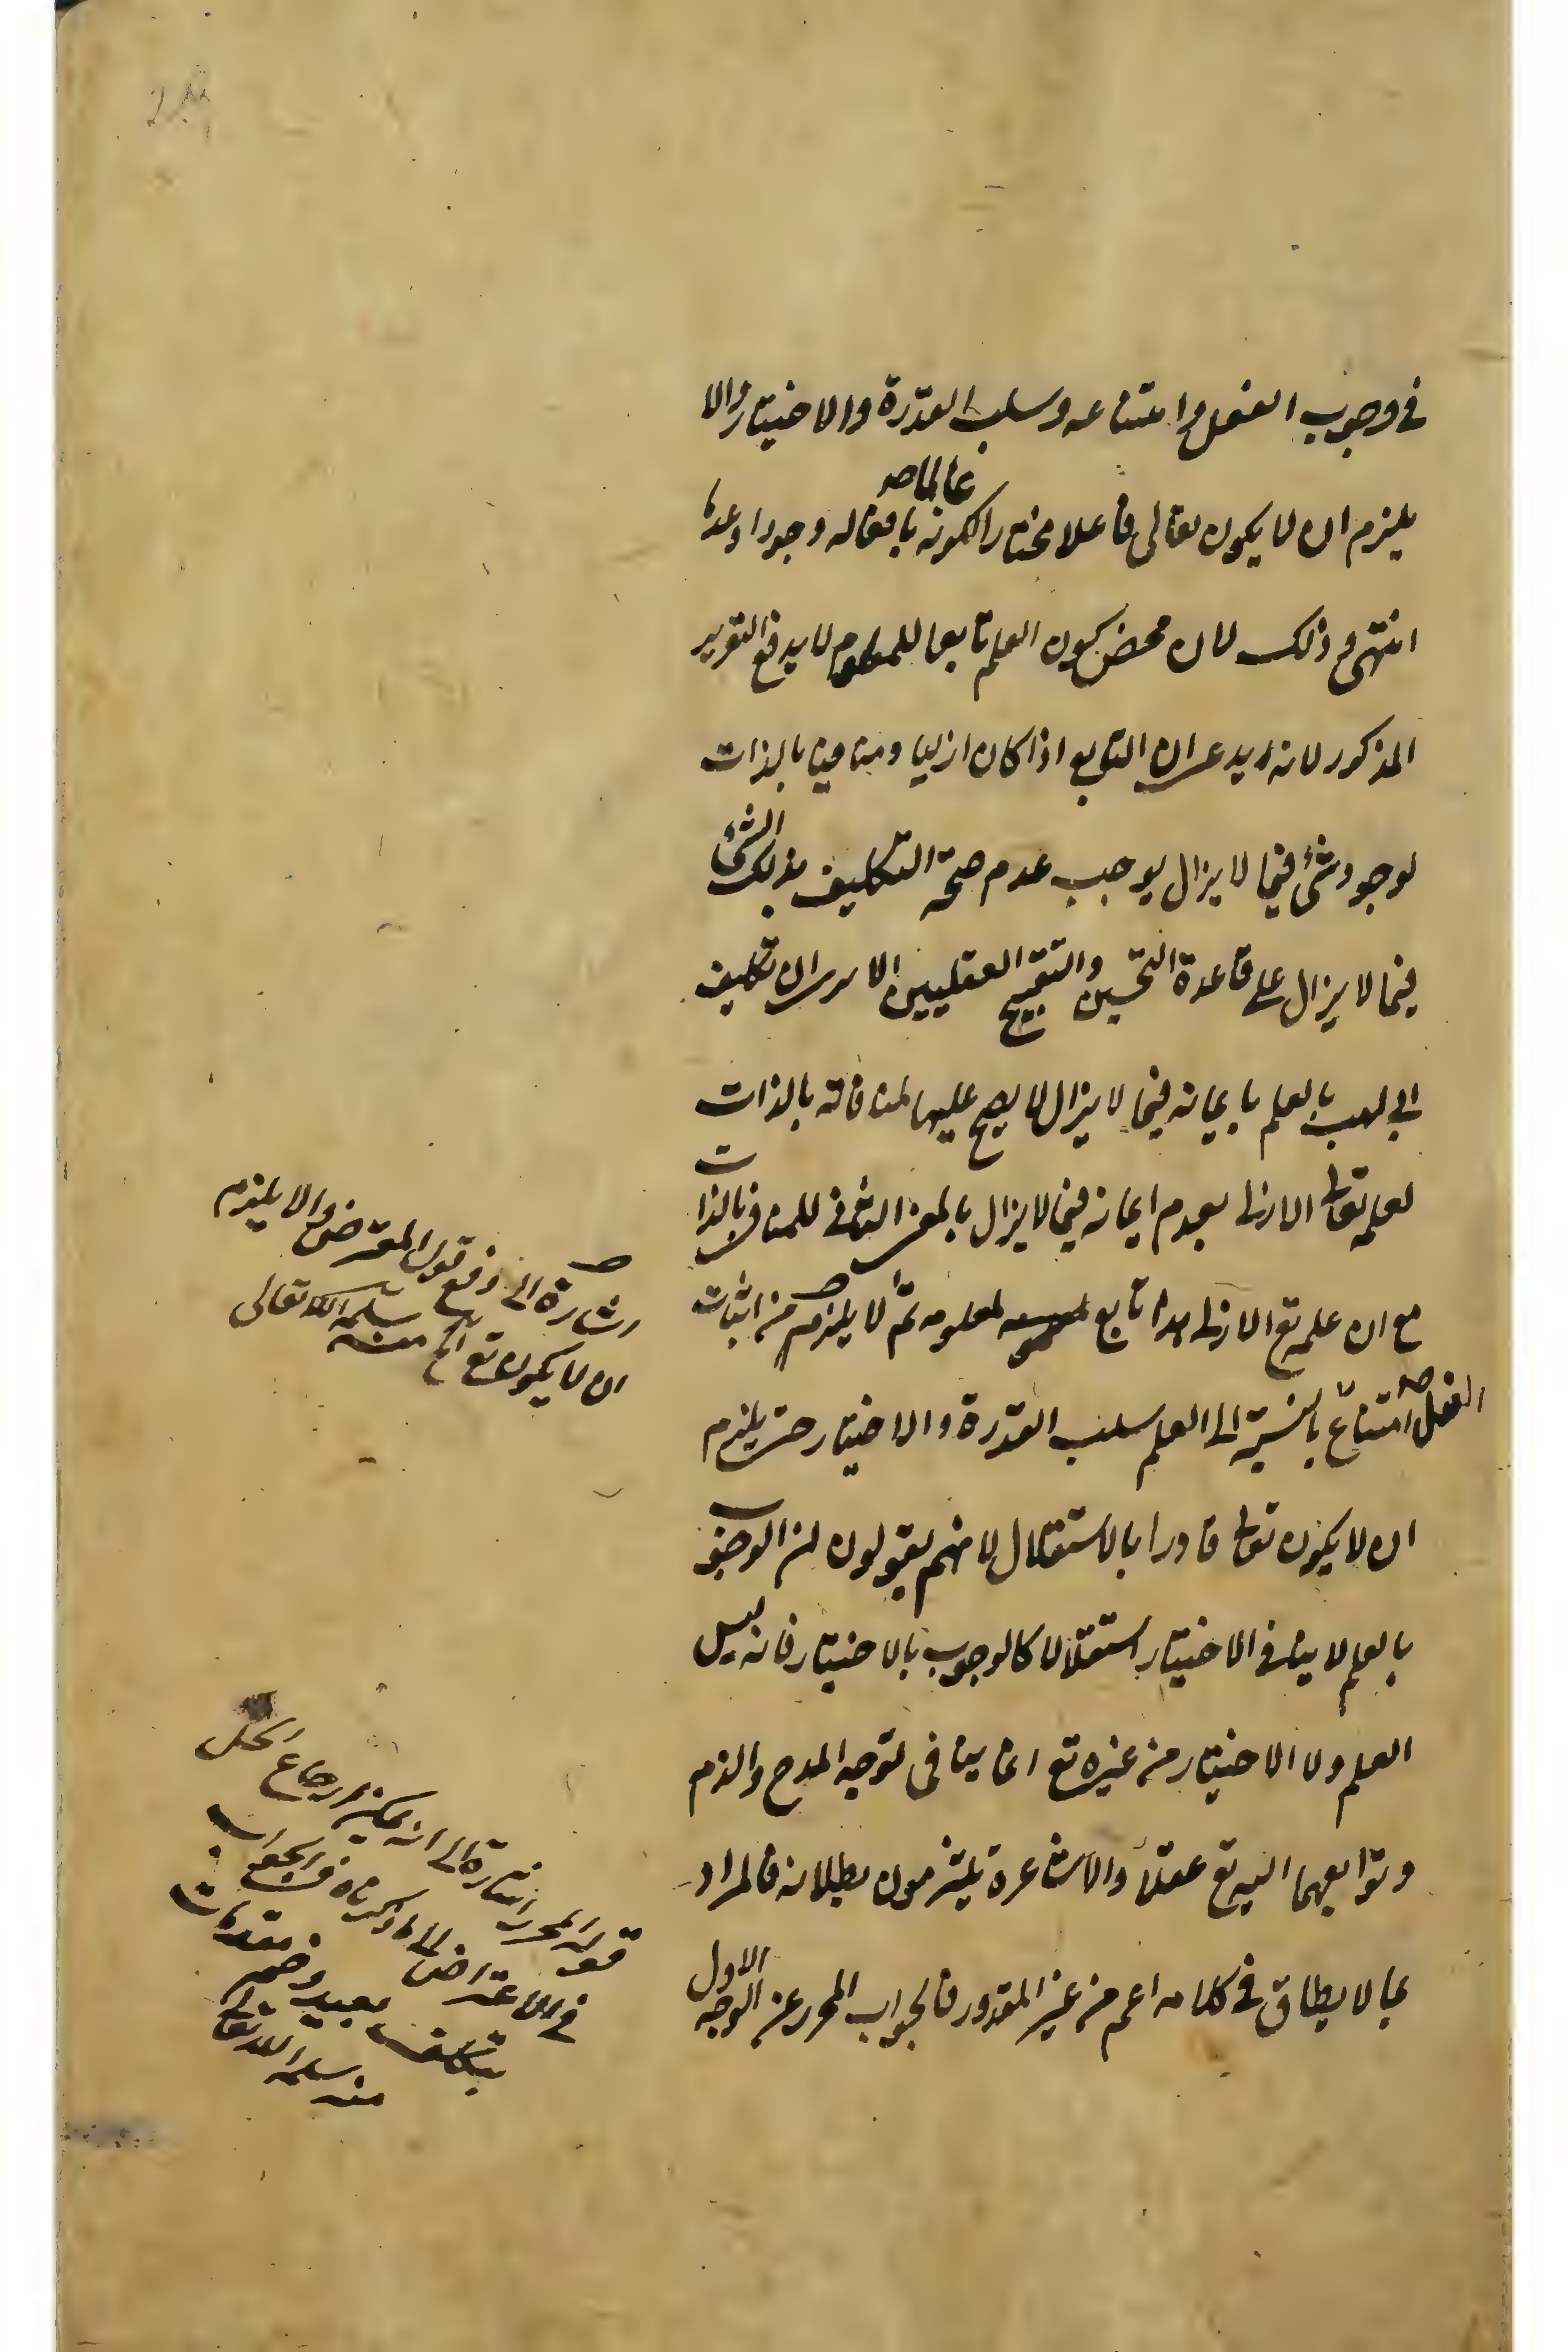 في وجوب الفعل وامتناعه وسلب القدرة والاختيار والا
عالما صح
يلزم ان لا يكون تعالى فاعلا مختارا لكونه بافعاله وجودا وعدما
انتهى وذلك لان محض كون العلم تابعا للمعلوم لا يدفع التقرير
المذكور لانه يدعى ان التابع اذا كان ازليا ومنافيا بالذات
لوجود شئ فيما لا يزال يوجب عدم صحة التكليف بذلك الشئ
فيما لا يزال على قاعدة التحسين والتقبيح العقليين الا ان تكليف
ابي لهب بالعلم بايمانه فيما لا يزال لا يصح عليها لمنافاته بالذات
لعلمه تعالى الازلي بعدم ايمانه فيما لا يزال بالمعنى الثاني للمنافي بالذات
مع ان علمه تع الازلي تابع لمعلومه ثم لا يلزم من اثبات
الفعل صح امتناع بالنسبة الى العلم سلب القدرة والاختيار حتى يلزم
ان لا يكون تعالى قادرا بالاستقلال لانهم يقولون ان الوجوب
بالعلم لا ينافي الاختيار استقلالا كالوجوب بالاختيار فانه ليس
العلم ولا الاختيار من غيره تع انما ينافي توجه المدح والذم
وتوابعهما اليه تع عقلا والاشاعرة يلتزمون بطلانه فالمراد
بما لا يطاق في كلامه اعم من غير المقدور فالجواب المحرر عن الوجه الاول
اشارة الى دفع قول المعترض والا يلزم
ان لا يكون تع الخ منه سلمه الله تعالى
قوله المحرر اشارة الى انه يمكن ارجاع الحل
في الاعتراض الى ما ذكرناه في الجواب
بتكلف بعيد وضم مقدمات
منه سلمه الله تعالى